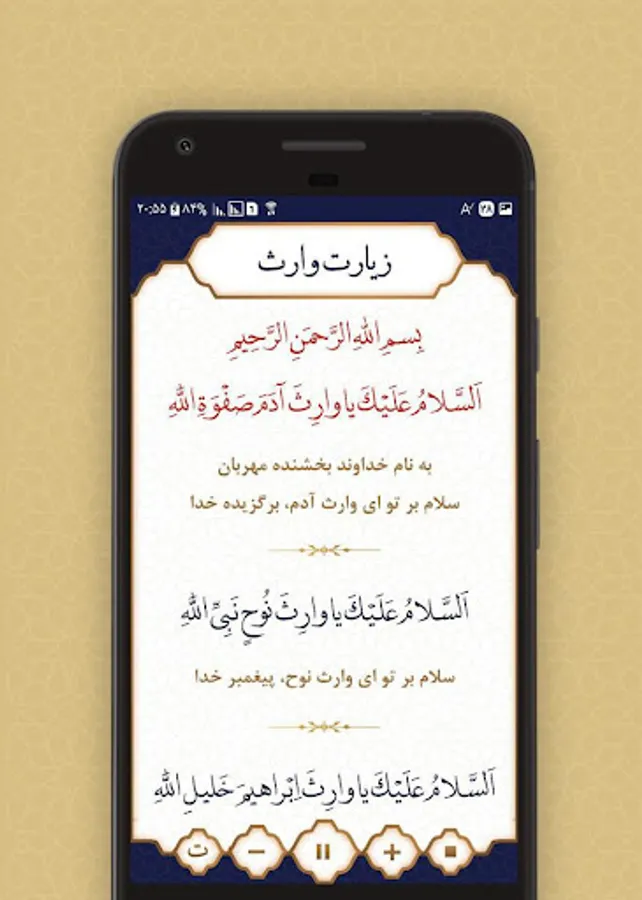 ۲۰:۵۵ ۸۴%
۲۸
زیارت وارث
بِسمِ اللهِ الرَّحمَنِ الرَّحِیمِ
اَلسَّلامُ عَلَیْكَ یا وارِثَ آدَمَ صَفْوَةِ اللهِ
به نام خداوند بخشنده مهربان
سلام بر تو ای وارث آدم، برگزیده خدا
اَلسَّلامُ عَلَیْكَ یا وارِثَ نُوحٍ نَبِیِّ اللهِ
سلام بر تو ای وارث نوح، پیغمبر خدا
اَلسَّلامُ عَلَیْكَ یا وارِثَ اِبْراهیمَ خَلیلِ اللهِ
ت